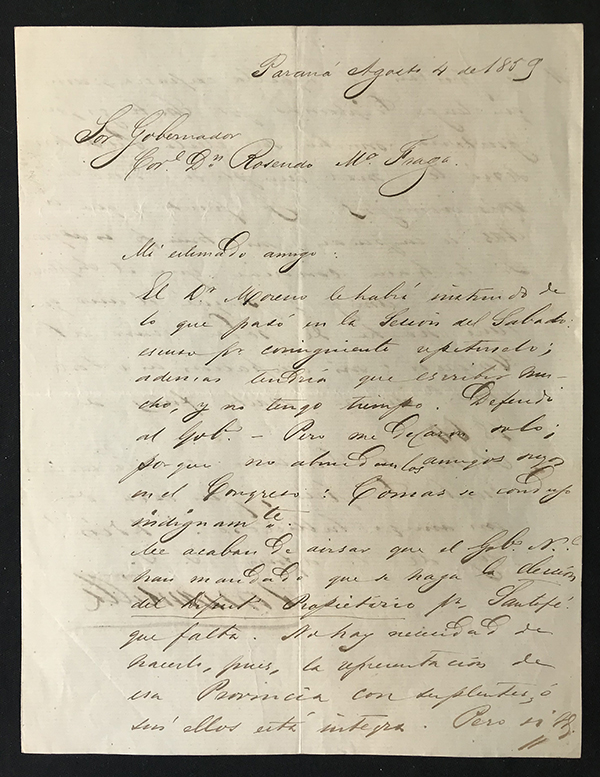 Paraná Agosto 4 de 1859
Sor. Gobernador
Cor.l D.n Rosendo M.a Fraga.
Mi estimado amigo:
El D.r Moreno le habrá instruido de
lo que pasó en la Sesion del Sabado:
escuso p.r consiguiente repetirselo;
ademas tendría que escribir mu-
cho, y no tengo tiempo. Defendi
al Gob.o – Pero me dejaron solo;
porque no abundan los amigos suyos
en el Congreso: Comas se condujo
indignam.te
Me acaban de avisar que el Gob.o N.l
han mandado que se haga la elección
del Diput.o Propietario p.r Santafé
que falta. No hay necesidad de
hacerlo, pues, la representación de
esa Provincia con suplentes, ó
sin ellos está integra. Pero si